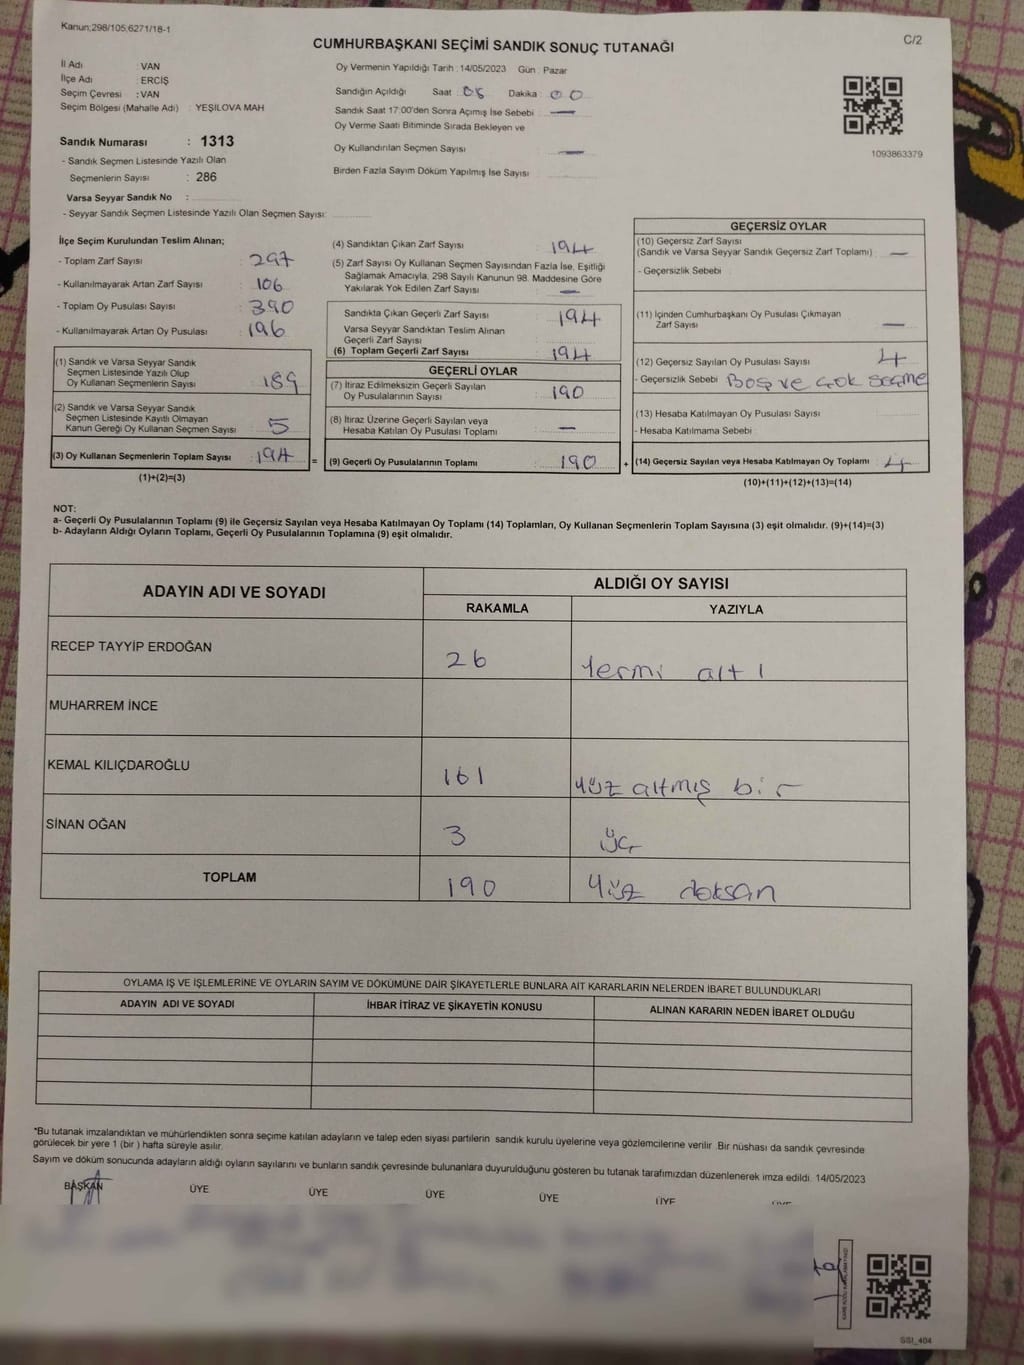 Kanun;298/105;6271/18-1
C/2
CUMHURBAŞKANI SEÇİMİ SANDIK SONUÇ TUTANAĞI
İl Adı : VAN
İlçe Adı : ERCİŞ
Seçim Çevresi : VAN
Seçim Bölgesi (Mahalle Adı) : YEŞİLOVA MAH
Sandık Numarası : 1313
- Sandık Seçmen Listesinde Yazılı Olan
Seçmenlerin Sayısı : 286
Varsa Seyyar Sandık No :
- Seyyar Sandık Seçmen Listesinde Yazılı Olan Seçmen Sayısı:
Oy Vermenin Yapıldığı Tarih : 14/05/2023 Gün : Pazar
Sandığın Açıldığı Saat : 08 Dakika : 00
Sandık Saat 17:00'den Sonra Açımış İse Sebebi : —
Oy Verme Saati Bitiminde Sırada Bekleyen ve
Oy Kullandırılan Seçmen Sayısı : —
Birden Fazla Sayım Döküm Yapılmış İse Sayısı :
1093863379
İlçe Seçim Kurulundan Teslim Alınan;
- Toplam Zarf Sayısı : 297
- Kullanılmayarak Artan Zarf Sayısı : 106
- Toplam Oy Pusulası Sayısı : 390
- Kullanılmayarak Artan Oy Pusulası : 196
(1) Sandık ve Varsa Seyyar Sandık
Seçmen Listesinde Yazılı Olup
Oy Kullanan Seçmenlerin Sayısı : 189
(2) Sandık ve Varsa Seyyar Sandık
Seçmen Listesinde Kayıtlı Olmayan
Kanun Gereği Oy Kullanan Seçmen Sayısı : 5
(3) Oy Kullanan Seçmenlerin Toplam Sayısı : 194
=
(1)+(2)=(3)
(4) Sandıktan Çıkan Zarf Sayısı : 194
(5) Zarf Sayısı Oy Kullanan Seçmen Sayısından Fazla İse, Eşitliği
Sağlamak Amacıyla, 298 Sayılı Kanunun 98. Maddesine Göre
Yakılarak Yok Edilen Zarf Sayısı : —
Sandıkta Çıkan Geçerli Zarf Sayısı : 194
Varsa Seyyar Sandıktan Teslim Alınan
Geçerli Zarf Sayısı :
(6) Toplam Geçerli Zarf Sayısı : 194
GEÇERLİ OYLAR
(7) İtiraz Edilmeksizin Geçerli Sayılan
Oy Pusulalarının Sayısı : 190
(8) İtiraz Üzerine Geçerli Sayılan veya
Hesaba Katılan Oy Pusulası Toplamı : —
(9) Geçerli Oy Pusulalarının Toplamı : 190
+
GEÇERSİZ OYLAR
(10) Geçersiz Zarf Sayısı
(Sandık ve Varsa Seyyar Sandık Geçersiz Zarf Toplamı) : —
- Geçersizlik Sebebi :
(11) İçinden Cumhurbaşkanı Oy Pusulası Çıkmayan
Zarf Sayısı : —
(12) Geçersiz Sayılan Oy Pusulası Sayısı : 4
- Geçersizlik Sebebi : Boş ve çok seçme
(13) Hesaba Katılmayan Oy Pusulası Sayısı :
- Hesaba Katılmama Sebebi :
(14) Geçersiz Sayılan veya Hesaba Katılmayan Oy Toplamı : 4
(10)+(11)+(12)+(13)=(14)
NOT:
a- Geçerli Oy Pusulalarının Toplamı (9) ile Geçersiz Sayılan veya Hesaba Katılmayan Oy Toplamı (14) Toplamları, Oy Kullanan Seçmenlerin Toplam Sayısına (3) eşit olmalıdır. (9)+(14)=(3)
b- Adayların Aldığı Oyların Toplamı, Geçerli Oy Pusulalarının Toplamına (9) eşit olmalıdır.
ADAYIN ADI VE SOYADI
ALDIĞI OY SAYISI
RAKAMLA YAZIYLA
RECEP TAYYİP ERDOĞAN 26 Yermi altı
MUHARREM İNCE
KEMAL KILIÇDAROĞLU 161 Yüz altmış bir
SİNAN OĞAN 3 Üç
TOPLAM 190 Yüz doksan
OYLAMA İŞ VE İŞLEMLERİNE VE OYLARIN SAYIM VE DÖKÜMÜNE DAİR ŞİKAYETLERLE BUNLARA AİT KARARLARIN NELERDEN İBARET BULUNDUKLARI
ADAYIN ADI VE SOYADI İHBAR İTİRAZ VE ŞİKAYETİN KONUSU ALINAN KARARIN NEDEN İBARET OLDUĞU
*Bu tutanak imzalandıktan ve mühürlendikten sonra seçime katılan adayların ve talep eden siyasi partilerin sandık kurulu üyelerine veya gözlemcilerine verilir. Bir nüshası da sandık çevresinde
görülecek bir yere 1 (bir ) hafta süreyle asılır.
Sayım ve döküm sonucunda adayların aldığı oyların sayılarını ve bunların sandık çevresinde bulunanlara duyurulduğunu gösteren bu tutanak tarafımızdan düzenlenerek imza edildi. 14/05/2023
BAŞKAN ÜYE ÜYE ÜYE ÜYE ÜYE ÜYE
SSI_404